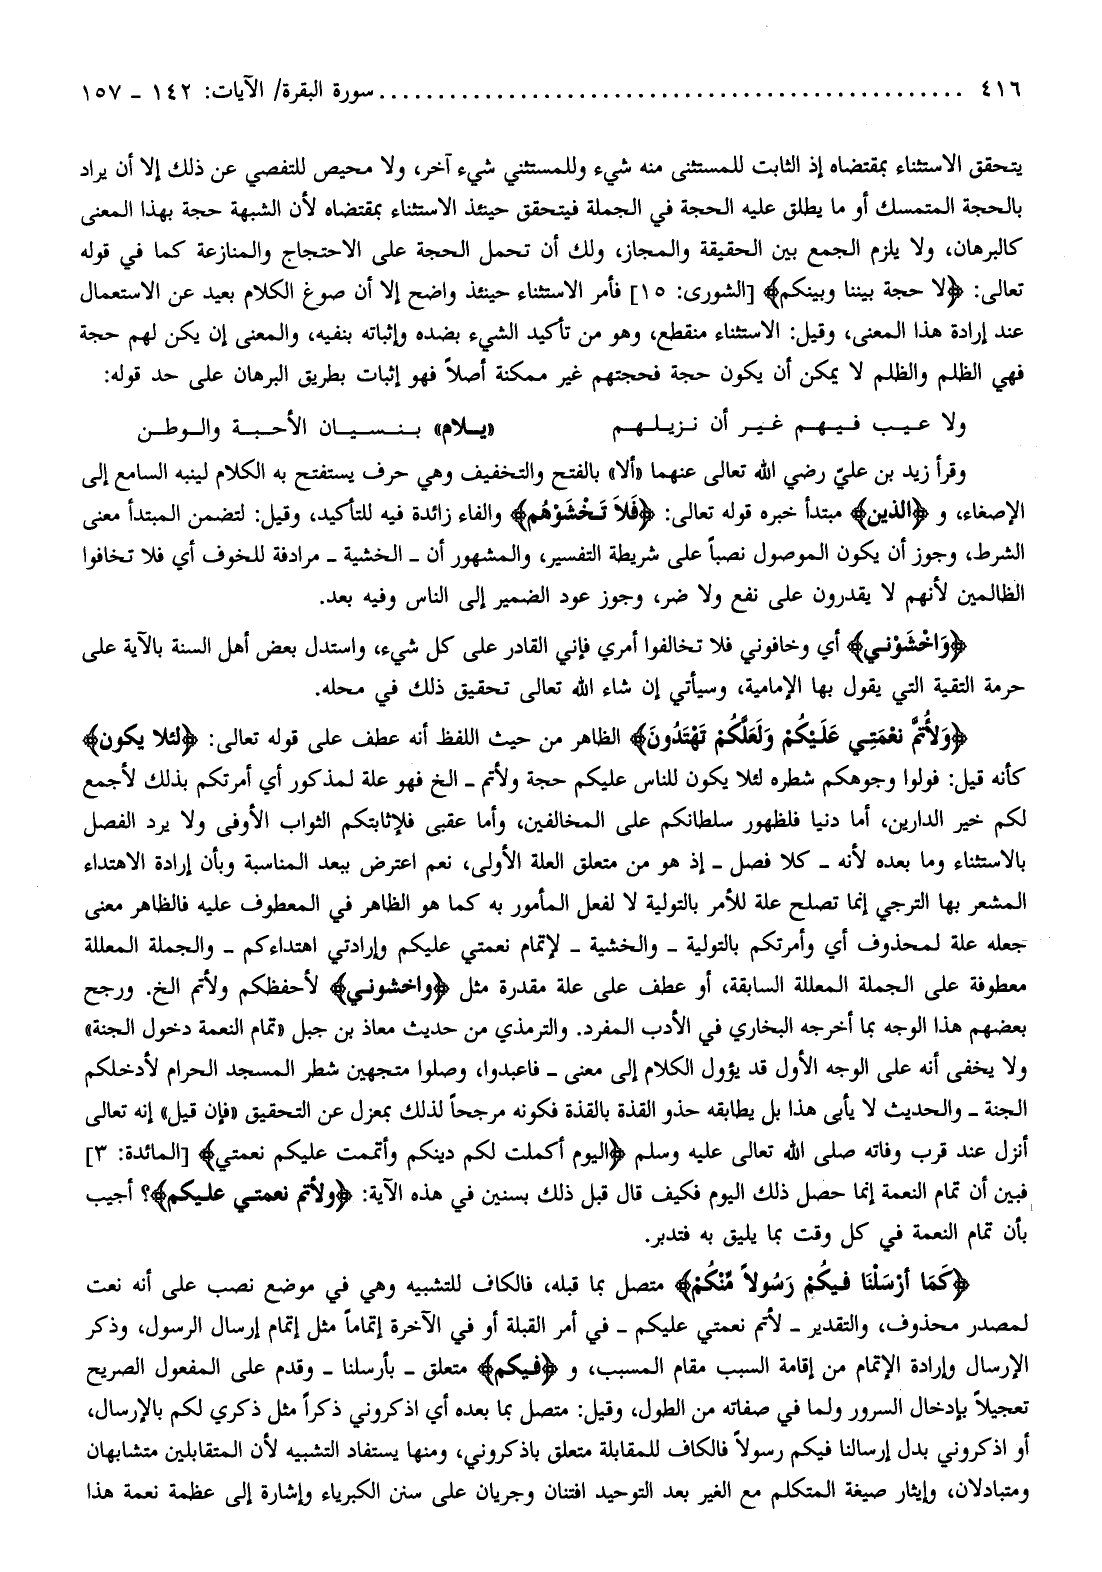 ٤١٦ ................................................ سورة البقرة/ الآيات: ١٤٢ ـ ١٥٧
يتحقق الاستثناء بمقتضاه إذ الثابت للمستثنى منه شيء وللمستثني شيء آخر، ولا محيص للتفصي عن ذلك إلا أن يراد
بالحجة المتمسك أو ما يطلق عليه الحجة في الجملة فيتحقق حينئذ الاستثناء بمقتضاه لأن الشبهة حجة بهذا المعنى
كالبرهان، ولا يلزم الجمع بين الحقيقة والمجاز، ولك أن تحمل الحجة على الاحتجاج والمنازعة كما في قوله
تعالى: ﴿لا حجة بيننا وبينكم﴾ [الشورى: ١٥] فأمر الاستثناء حينئذ واضح إلا أن صوغ الكلام بعيد عن الاستعمال
عند إرادة هذا المعنى، وقيل: الاستثناء منقطع، وهو من تأكيد الشيء بضده وإثباته بنفيه، والمعنى إن يكن لهم حجة
فهي الظلم والظلم لا يمكن أن يكون حجة فحجتهم غير ممكنة أصلاً فهو إثبات بطريق البرهان على حد قوله:
ولا عيب فيهم غير أن نزيلهم «يلام» بنسيان الأحبة والوطن
وقرأ زيد بن عليّ رضي الله تعالى عنهما «ألا» بالفتح والتخفيف وهي حرف يستفتح به الكلام لينبه السامع إلى
الإصغاء، و ﴿الذين﴾ مبتدأ خبره قوله تعالى: ﴿فَلاَ تَخْشَوْهُم﴾ والفاء زائدة فيه للتأكيد، وقيل: لتضمن المبتدأ معنى
الشرط، وجوز أن يكون الموصول نصباً على شريطة التفسير، والمشهور أن ـ الخشية ـ مرادفة للخوف أي فلا تخافوا
الظالمين لأنهم لا يقدرون على نفع ولا ضر، وجوز عود الضمير إلى الناس وفيه بعد.
﴿وَاخْشَوْني﴾ أي وخافوني فلا تخالفوا أمري فإني القادر على كل شيء، واستدل بعض أهل السنة بالآية على
حرمة التقية التي يقول بها الإمامية، وسيأتي إن شاء الله تعالى تحقيق ذلك في محله.
﴿وَلأُتمَّ نعْمَتِي عَلَيْكُمْ وَلَعَلَّكُمْ تَهْتَدُونَ﴾ الظاهر من حيث اللفظ أنه عطف على قوله تعالى: ﴿لئلا يكون﴾
كأنه قيل: فولوا وجوهكم شطره لئلا يكون للناس عليكم حجة ولأتم ـ الخ فهو علة لمذكور أي أمرتكم بذلك لأجمع
لكم خير الدارين، أما دنيا فلظهور سلطانكم على المخالفين، وأما عقبى فلإثابتكم الثواب الأوفى ولا يرد الفصل
بالاستثناء وما بعده لأنه ـ كلا فصل ـ إذ هو من متعلق العلة الأولى، نعم اعترض ببعد المناسبة وبأن إرادة الاهتداء
المشعر بها الترجي إنما تصلح علة للأمر بالتولية لا لفعل المأمور به كما هو الظاهر في المعطوف عليه فالظاهر معنى
جعله علة لمحذوف أي وأمرتكم بالتولية ـ والخشية ـ لإتمام نعمتي عليكم وإرادتي اهتداءكم ـ والجملة المعللة
معطوفة على الجملة المعللة السابقة، أو عطف على علة مقدرة مثل ﴿واخشوني﴾ لأحفظكم ولأتم الخ. ورجح
بعضهم هذا الوجه بما أخرجه البخاري في الأدب المفرد. والترمذي من حديث معاذ بن جبل «تمام النعمة دخول الجنة»
ولا يخفى أنه على الوجه الأول قد يؤول الكلام إلى معنى ـ فاعبدوا، وصلوا متجهين شطر المسجد الحرام لأدخلكم
الجنة ـ والحديث لا يأبى هذا بل يطابقه حذو القذة بالقذة فكونه مرجحاً لذلك بمعزل عن التحقيق «فإن قيل» إنه تعالى
أنزل عند قرب وفاته صلى الله تعالى عليه وسلم ﴿اليوم أكملت لكم دينكم وأتممت عليكم نعمتي﴾ [المائدة: ٣]
فبين أن تمام النعمة إنما حصل ذلك اليوم فكيف قال قبل ذلك بسنين في هذه الآية: ﴿ولأتم نعمتي عليكم﴾؟ أجيب
بأن تمام النعمة في كل وقت بما يليق به فتدبر.
﴿كَمَا أرْسَلْنَا فيكُمْ رَسُولاً مِّنْكُمْ﴾ متصل بما قبله، فالكاف للتشبيه وهي في موضع نصب على أنه نعت
لمصدر محذوف، والتقدير ـ لأتم نعمتي عليكم ـ في أمر القبلة أو في الآخرة إتماماً مثل إتمام إرسال الرسول، وذكر
الإرسال وإرادة الإتمام من إقامة السبب مقام المسبب، و ﴿فيكم﴾ متعلق ـ بأرسلنا ـ وقدم على المفعول الصريح
تعجيلاً بإدخال السرور ولما في صفاته من الطول، وقيل: متصل بما بعده أي اذكروني ذكراً مثل ذكري لكم بالإرسال،
أو اذكروني بدل إرسالنا فيكم رسولاً فالكاف للمقابلة متعلق باذكروني، ومنها يستفاد التشبيه لأن المتقابلين متشابهان
ومتبادلان، وإيثار صيغة المتكلم مع الغير بعد التوحيد افتنان وجريان على سنن الكبرياء وإشارة إلى عظمة نعمة هذا